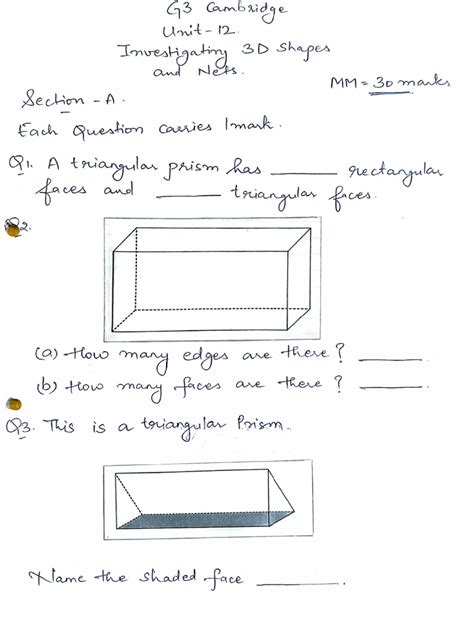 G3 Cambridge
Unit-12
Investigating 3D shapes
and Nets.
MM = 30 marks
Section - A.
Each Question carries 1 mark.
Q1. A triangular prism has ______ rectangular
faces and ______ triangular faces.
Q2.
(a) How many edges are there? ______
(b) How many faces are there? ______
Q3. This is a triangular Prism.
Name the shaded face ______.